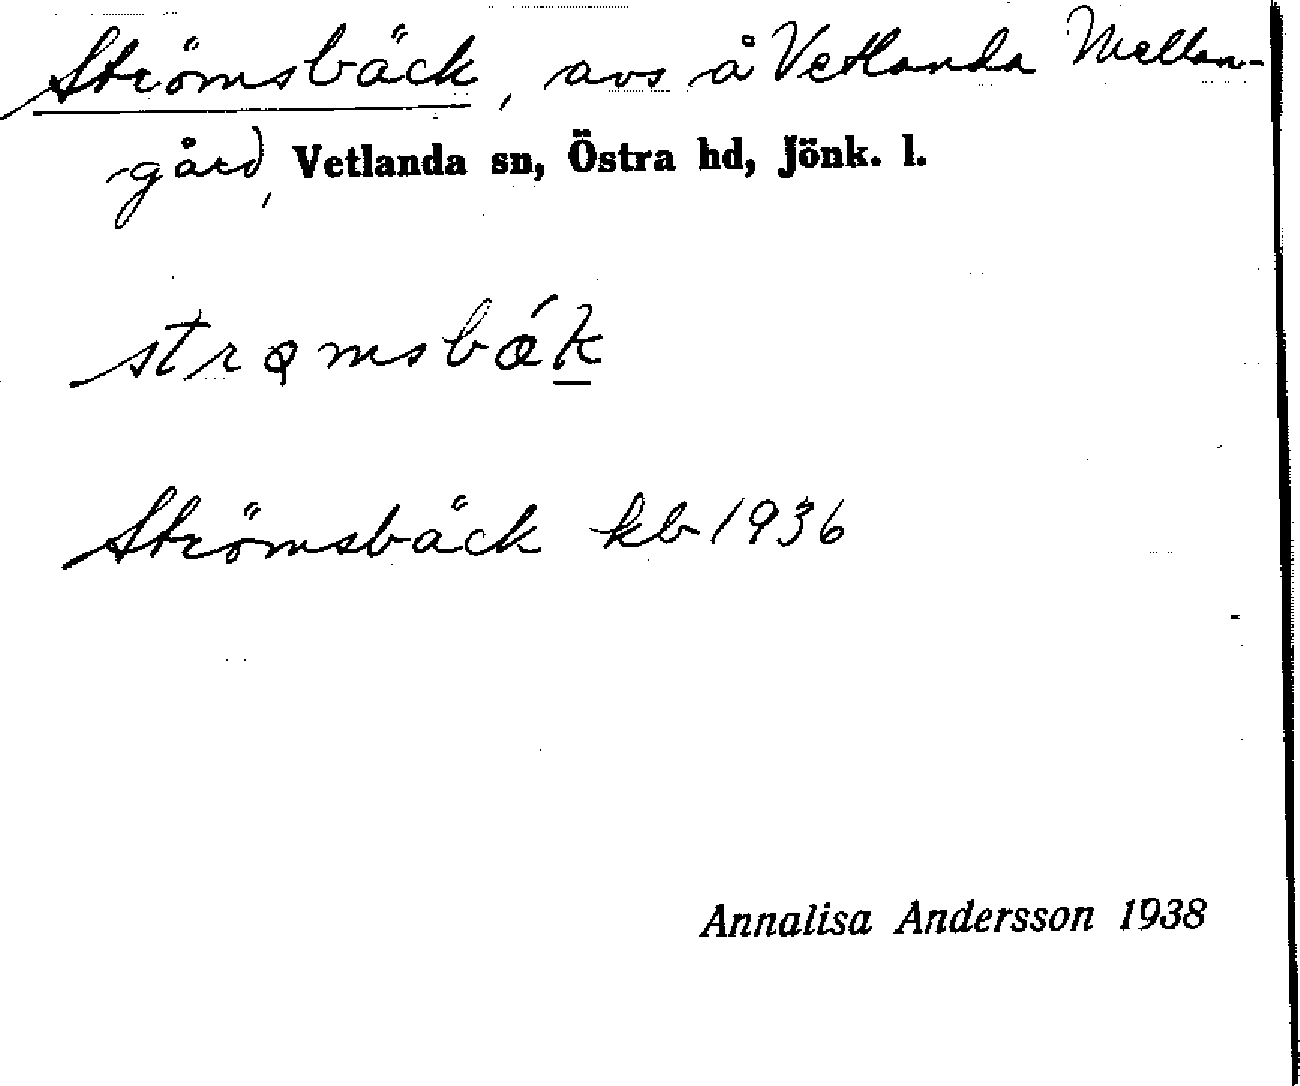 Strömsbäck, avs å Vetlanda Mellan-
gård, Vetlanda sn, Östra hd, Jönk. l.
strømsbǽk
Strömsbäck kb 1936
Annalisa Andersson 1938